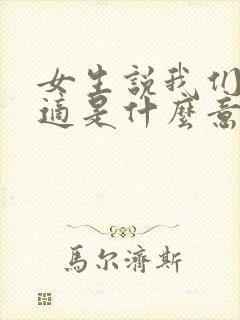 女生説我们
適是什麼意
馬尔濟斯